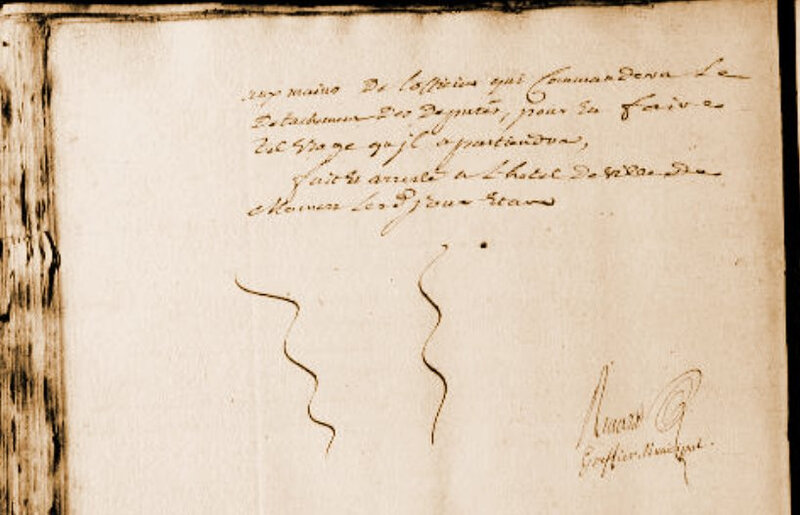 aux mains De l'officier qui Commandera Le
Detachement Des Deputés, pour En faire
Tel Usage qu'jl apartiendra,
fait et arresté a L'hotel De ville De
Les d. jour et an
Greffier